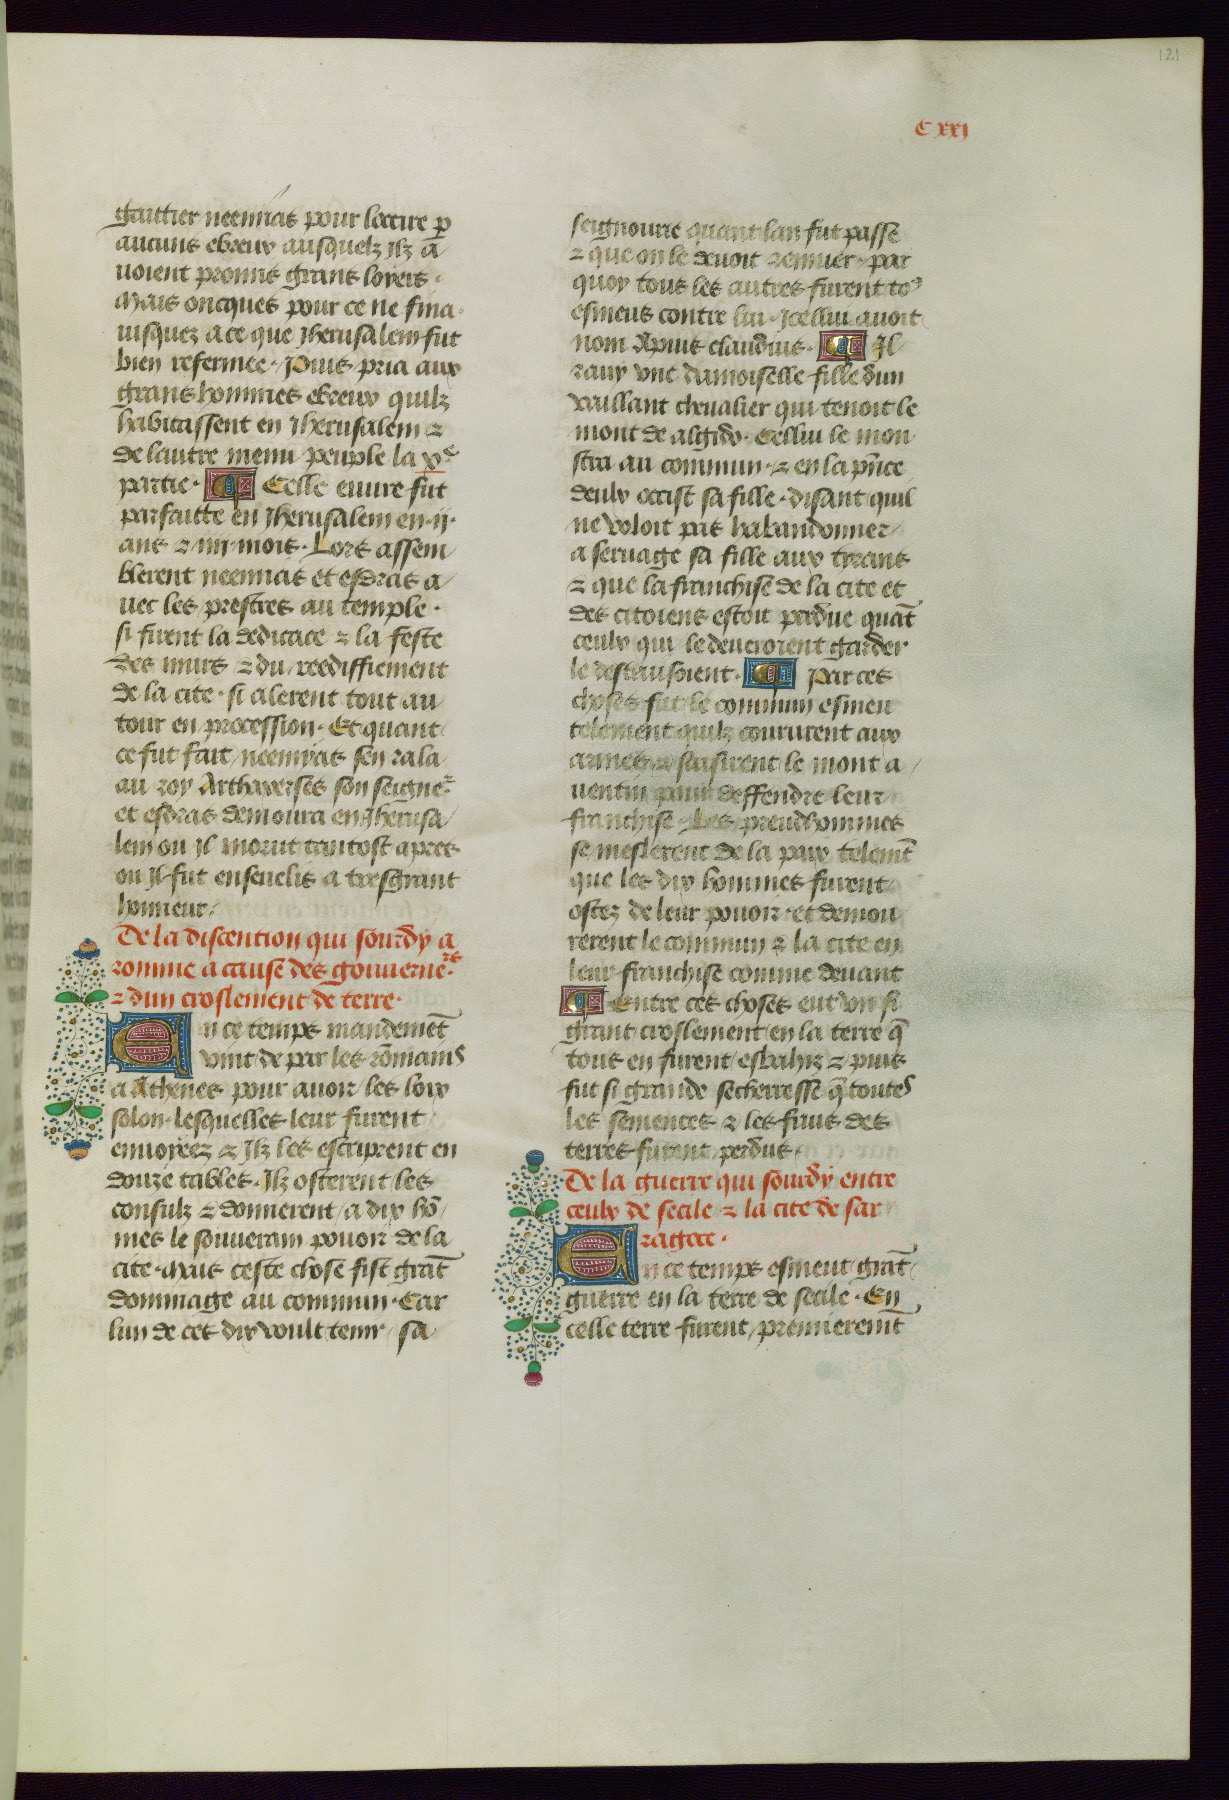 121
C xxj
gaittier neemias pour loccire p̱
aucuns ebreux ausquelz Ilz a
uoient promis grans loyers ·
Mais oncques pour ce ne fina
iusquez a ce que Jherusalem fut
bien refermee · Puis pria aux
grans hommes ebreux quilz
habitassent en Jherusalem ⁊
de lautre menu peuple la xe
partie · Celle euure fut
parfaitte en Jherusalem en · ij ·
ans ⁊ iiij mois · Lors assem
blerent neemias et esdras a
uec les prestres au temple ·
si firent la dedicace ⁊ la feste
des murs ⁊ du reediffiement
de la cite · si alerent tout au
tour en procession · Et quant
ce fut fait / neemyas sen rala
au roy Arthaxerses son seigner
et esdras demoura en Jherusa
lem ou Il morut tantost apres
ou Il fut enseuelis a tresgrant
honneur /
De la discention qui sourdy a
romme a cause des gouuerners
⁊ dun croslement de terre ·
En ce temps mandemēt
vint de par les rōmains
a Athenes pour auoir les loix
solon · lesquelles leur furent
enuoyeez ⁊ Ilz les escriprent en
douze tables · Ilz osterent les
consulz ⁊ donnerent / a dix hō
mes le souuerain pouoir de la
cite · Mais ceste chose fist grāt
dommage au commun · Car
lun de ces dix voult tenir / sa
seignourie quant lan fut passe
⁊ que on le deuoit remuer / par
quoy tous les autres furent to9
esmeus contre lui · Icellui auoit
nom Apius claudius · Il
rauy vne damoiselle fille dun
vaillant cheualier qui tenoit le
mont de algido · Cellui le mon
stra au commun · ⁊ en la pñce
deulx occist sa fille · disant quil
ne voloit pas habandonner
a seruage sa fille aux tyrans
⁊ que la franchise de la cite et
des citoiens estoit perdue quāt
ceulx qui le deueroient garder
le destruisoient · Par ces
choses fut le commun esmeu
telement quilz coururent aux
armes ⁊ saisirent le mont a
uentin pour deffendre leur
franchise · Les preudhommes
se meslerent de la paix telemt̄
que les dix hommes furent
ostez de leur pouoir · et demou
rerent le commun ⁊ la cite en
leur franchise comme deuant
Entre ces choses eut vn si
grant croslement en la terre q̄
tous en furent / esbahiz ⁊ puis
fut si grande secherresse q̄ toutes
les semences ⁊ les fruis des
terres furent perdus ·
De la guerre qui sourdy entre
ceulx de secile ⁊ la cite de sar
ragoce ·
En ce temps esmeut grāt
guerre en la terre de secile · En
celle terre furent / premieremt̄